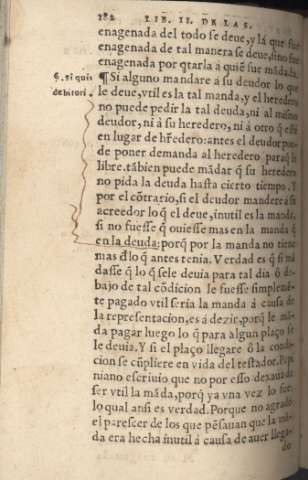 182 LIB. II. DE LAS.
enagenada del todo se deue, y lá que fue
enagenada de tal manera se deue, sino fue
enagenada por qtarla á quiẽ fue mãdada.
§. si quis ¶ Si alguno mandare á su deudor lo que
debitori. le deue, vtil es la tal manda, y el heredero
no puede pedir la tal deuda, ni al mismo
deudor, ni á su heredero, ni á otro q̃ esté
en lugar de hr̃edero: antes el deudor puede
de poner demanda al heredero paraq̃ lo
libre. tãbien puede mãdar q̃ su heredero
no pida la deuda hasta cierto tiempo. Y
por el cõtrario, si el deudor mandere á su
acreedor lo q̃ el deue, inutil es la manda,
si no fuesse q̃ ouiesse mas en la manda q̃
en la deuda: porq̃ por la manda no tiene
mas dlo q̃ antes tenia. Verdad es q̃ si mã
dasse q̃ lo q̃ sele deuia para tal dia ó de-
bajo de tal cõdicion le fuesse simplemẽ-
te pagado vtil seria la manda á causa de
la representacion, es á dezir, porq̃ le mã-
da pagar luego lo q̃ para algun plaço se
le deuia. Y si el plaço llegare ó la condi-
cion se cũpliere en vida del testador. Papi
niano escriuio que no por esso dexaua de
ser vtil la mãda, porq̃ ya vna vez lo fue:
lo qual ansi es verdad. Porque no agradó
el parescer de los que pẽsauan que la mã-
da era hecha inutil á causa de auer llega-
do